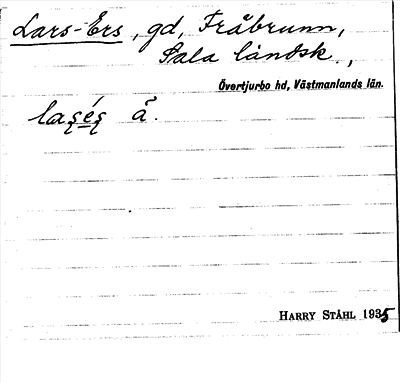 Lars-Ers, gd, Fräbrunn,
Sala landsk.,
Övertjurbo hd, Västmanlands län.
HARRY STÅHL 1935